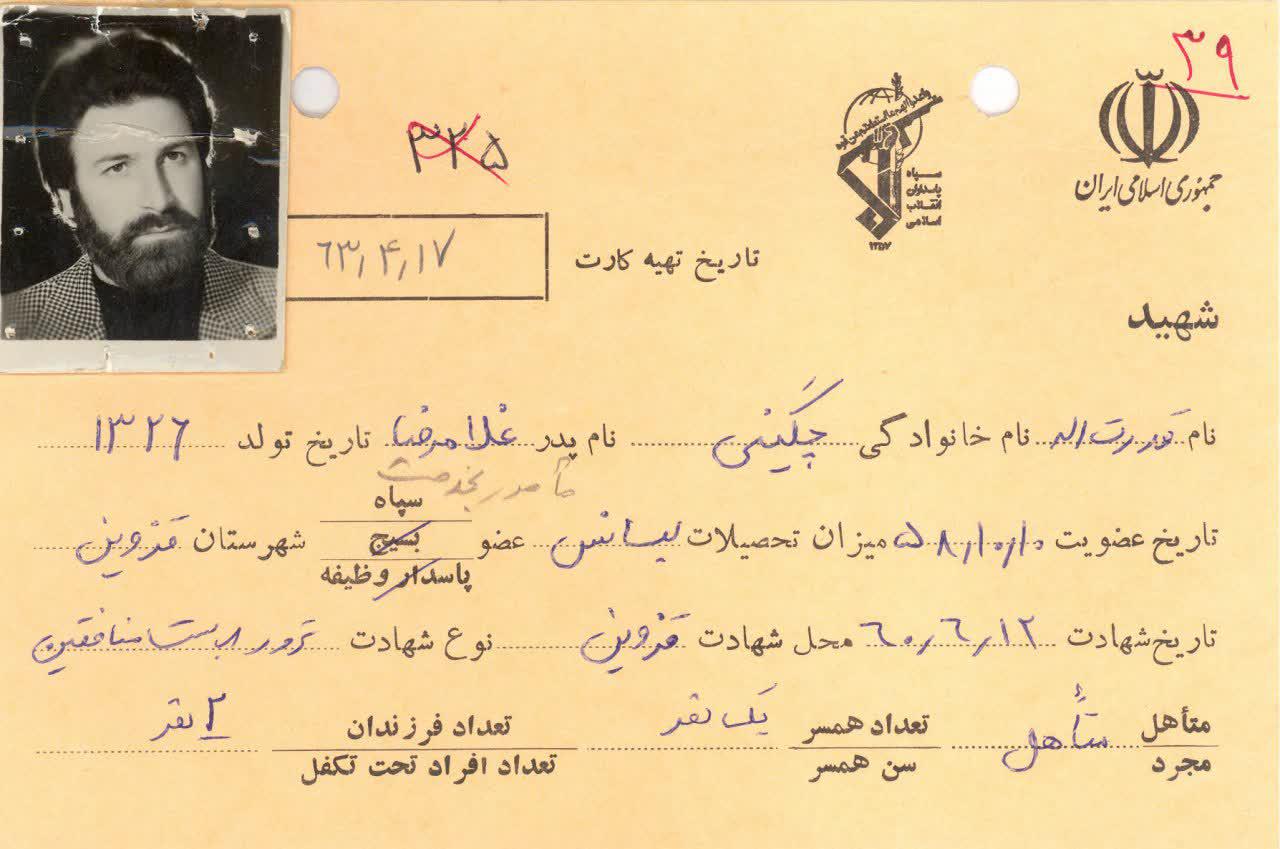 ۳۹
جمهوری اسلامی ایران
سپاه
پاسداران
انقلاب
اسلامی
۱۳۵۷
۳۲۵
تاریخ تهیه کارت ۶۳٫۴٫۱۷
شهید
نام قدرت اله نام خانوادگی چگینی نام پدر غلامرضا تاریخ تولد ۱۳۲۶
مأمور بخدمت
تاریخ عضویت ۵۸٫۱۰٫۱۰ میزان تحصیلات لیسانس عضو سپاه بسیج پاسدار وظیفه شهرستان قزوین
تاریخ شهادت ۶۰٫۶٫۱۲ محل شهادت قزوین نوع شهادت ترور بدست منافقین
متأهل مجرد متأهل تعداد همسر سن همسر یک نفر تعداد فرزندان تعداد افراد تحت تکفل ۲ نفر